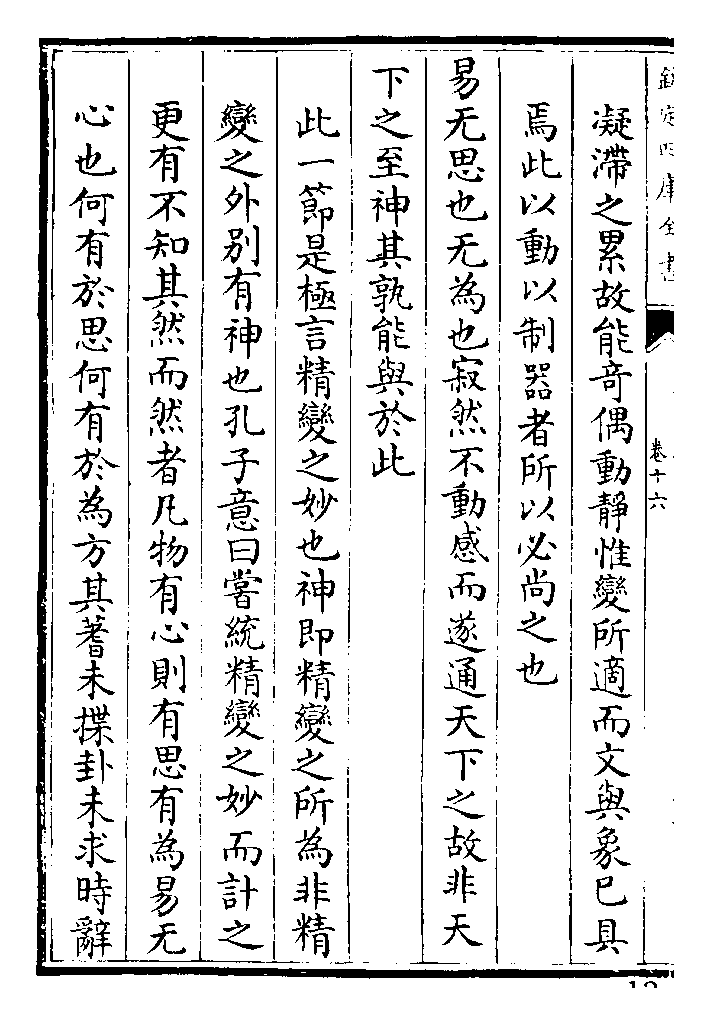 欽定四庫全書
卷十六
凝滯之累故能奇偶動靜惟變所適而文與象已具
焉此以動以制器者所以必尚之也
易无思也无為也寂然不動感而遂通天下之故非天
下之至神其孰能與於此
此一節是極言精變之妙也神即精變之所為非精
變之外别有神也孔子意曰嘗統精變之妙而計之
更有不知其然而然者凡物有心則有思有為易无
心也何有於思何有於為方其蓍未揲卦未求時辭